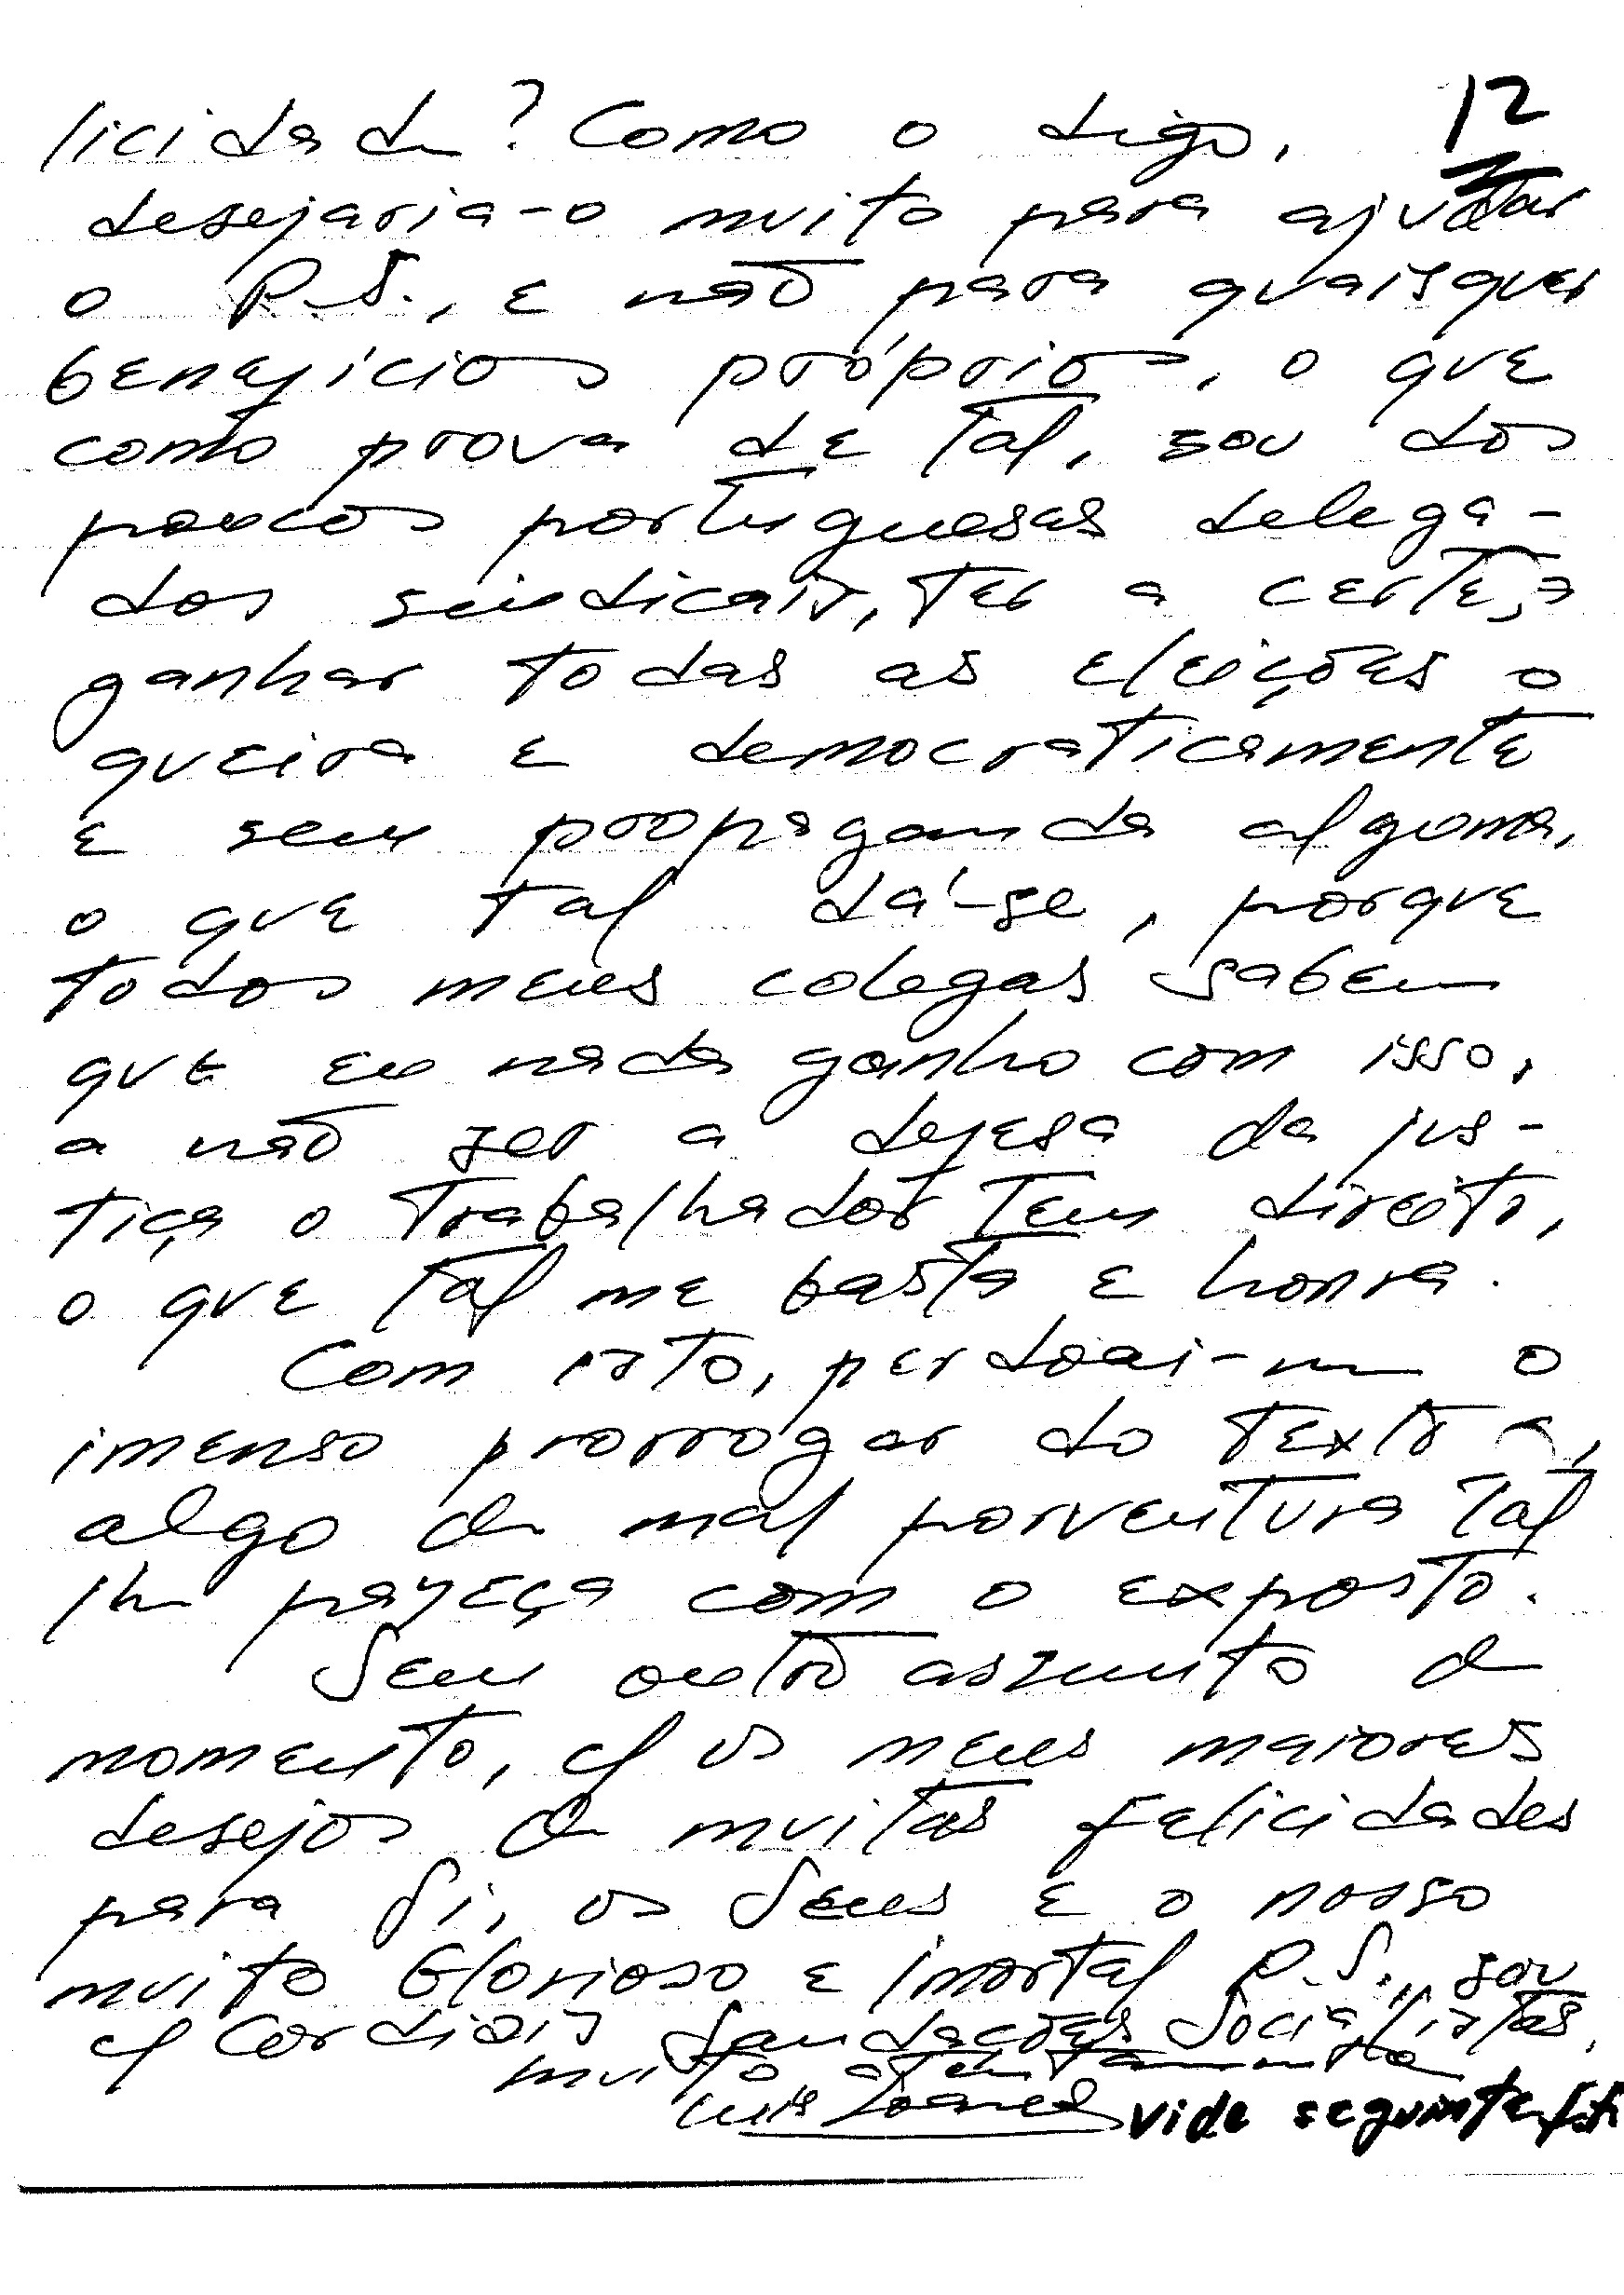 licidade? Como o digo, 12
desejaria-o muito para ajudar
o P.S., e não para quaisquer
benefícios próprios, o que
como prova de tal, sou dos
poucos portugueses delega-
dos sindicais, ter a certeza
ganhar todas as eleições o
queira e democraticamente
e sem propaganda alguma,
o que tal dá-se, porque
todos meus colegas sabem
que eu nada ganho com isso,
a não ser a defesa da jus-
tiça o trabalhador tem direito,
o que tal me basta e honra.
Com isto, perdoai-me o
imenso prorrogar do texto e,
algo de mal porventura tal
lhe pareça com o exposto.
Sem outro assunto de
momento, c/ os meus maiores
desejos de muitas felicidades
para Si, os Seus e o nosso
muito Glorioso e imortal P.S., sou
c/ Cordiais Saudações Socialistas,
muito atentamente
Luís Soares vide seguinte